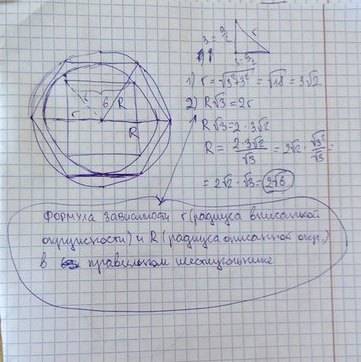 r
6
R
r
R
3 = a/2
r
1) r = √3²+3² = √18 = 3√2
2) R√3 = 2r
R√3 = 2·3√2
R = 2·3√2/√3 = 2√2 · √3²/√3 =
= 2√2 · √3 = 2√6
Формула зависимости r (радиуса вписанной
окружности) и R (радиуса описанной окр.)
в правильном шестиугольнике